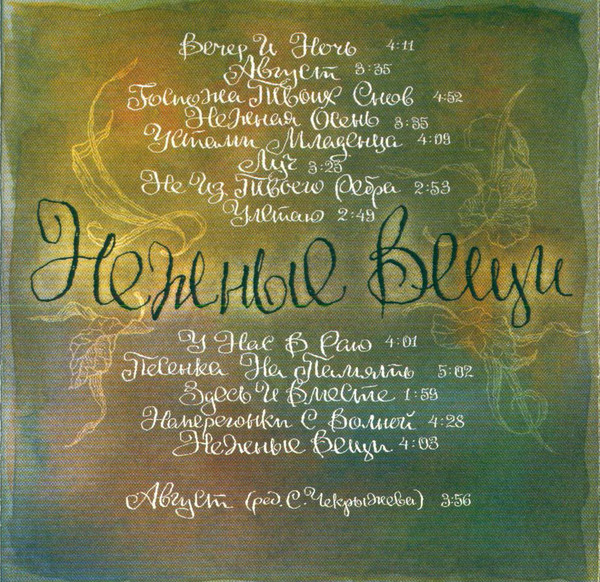 Вечер И Ночь 4:11
Август 3:35
Госпожа Твоих Снов 4:52
Нежная Осень 3:35
Устами Младенца 4:09
Луч 3:25
Не Из Твоего Ребра 2:53
Улетаю 2:49
Нежные Вещи
У Нас В Раю 4:01
Песенка На Память 5:02
Здесь И Вместе 1:59
Наперегонки С Волной 4:28
Нежные Вещи 4:03
Август (ред. С. Чекрыжева) 3:56